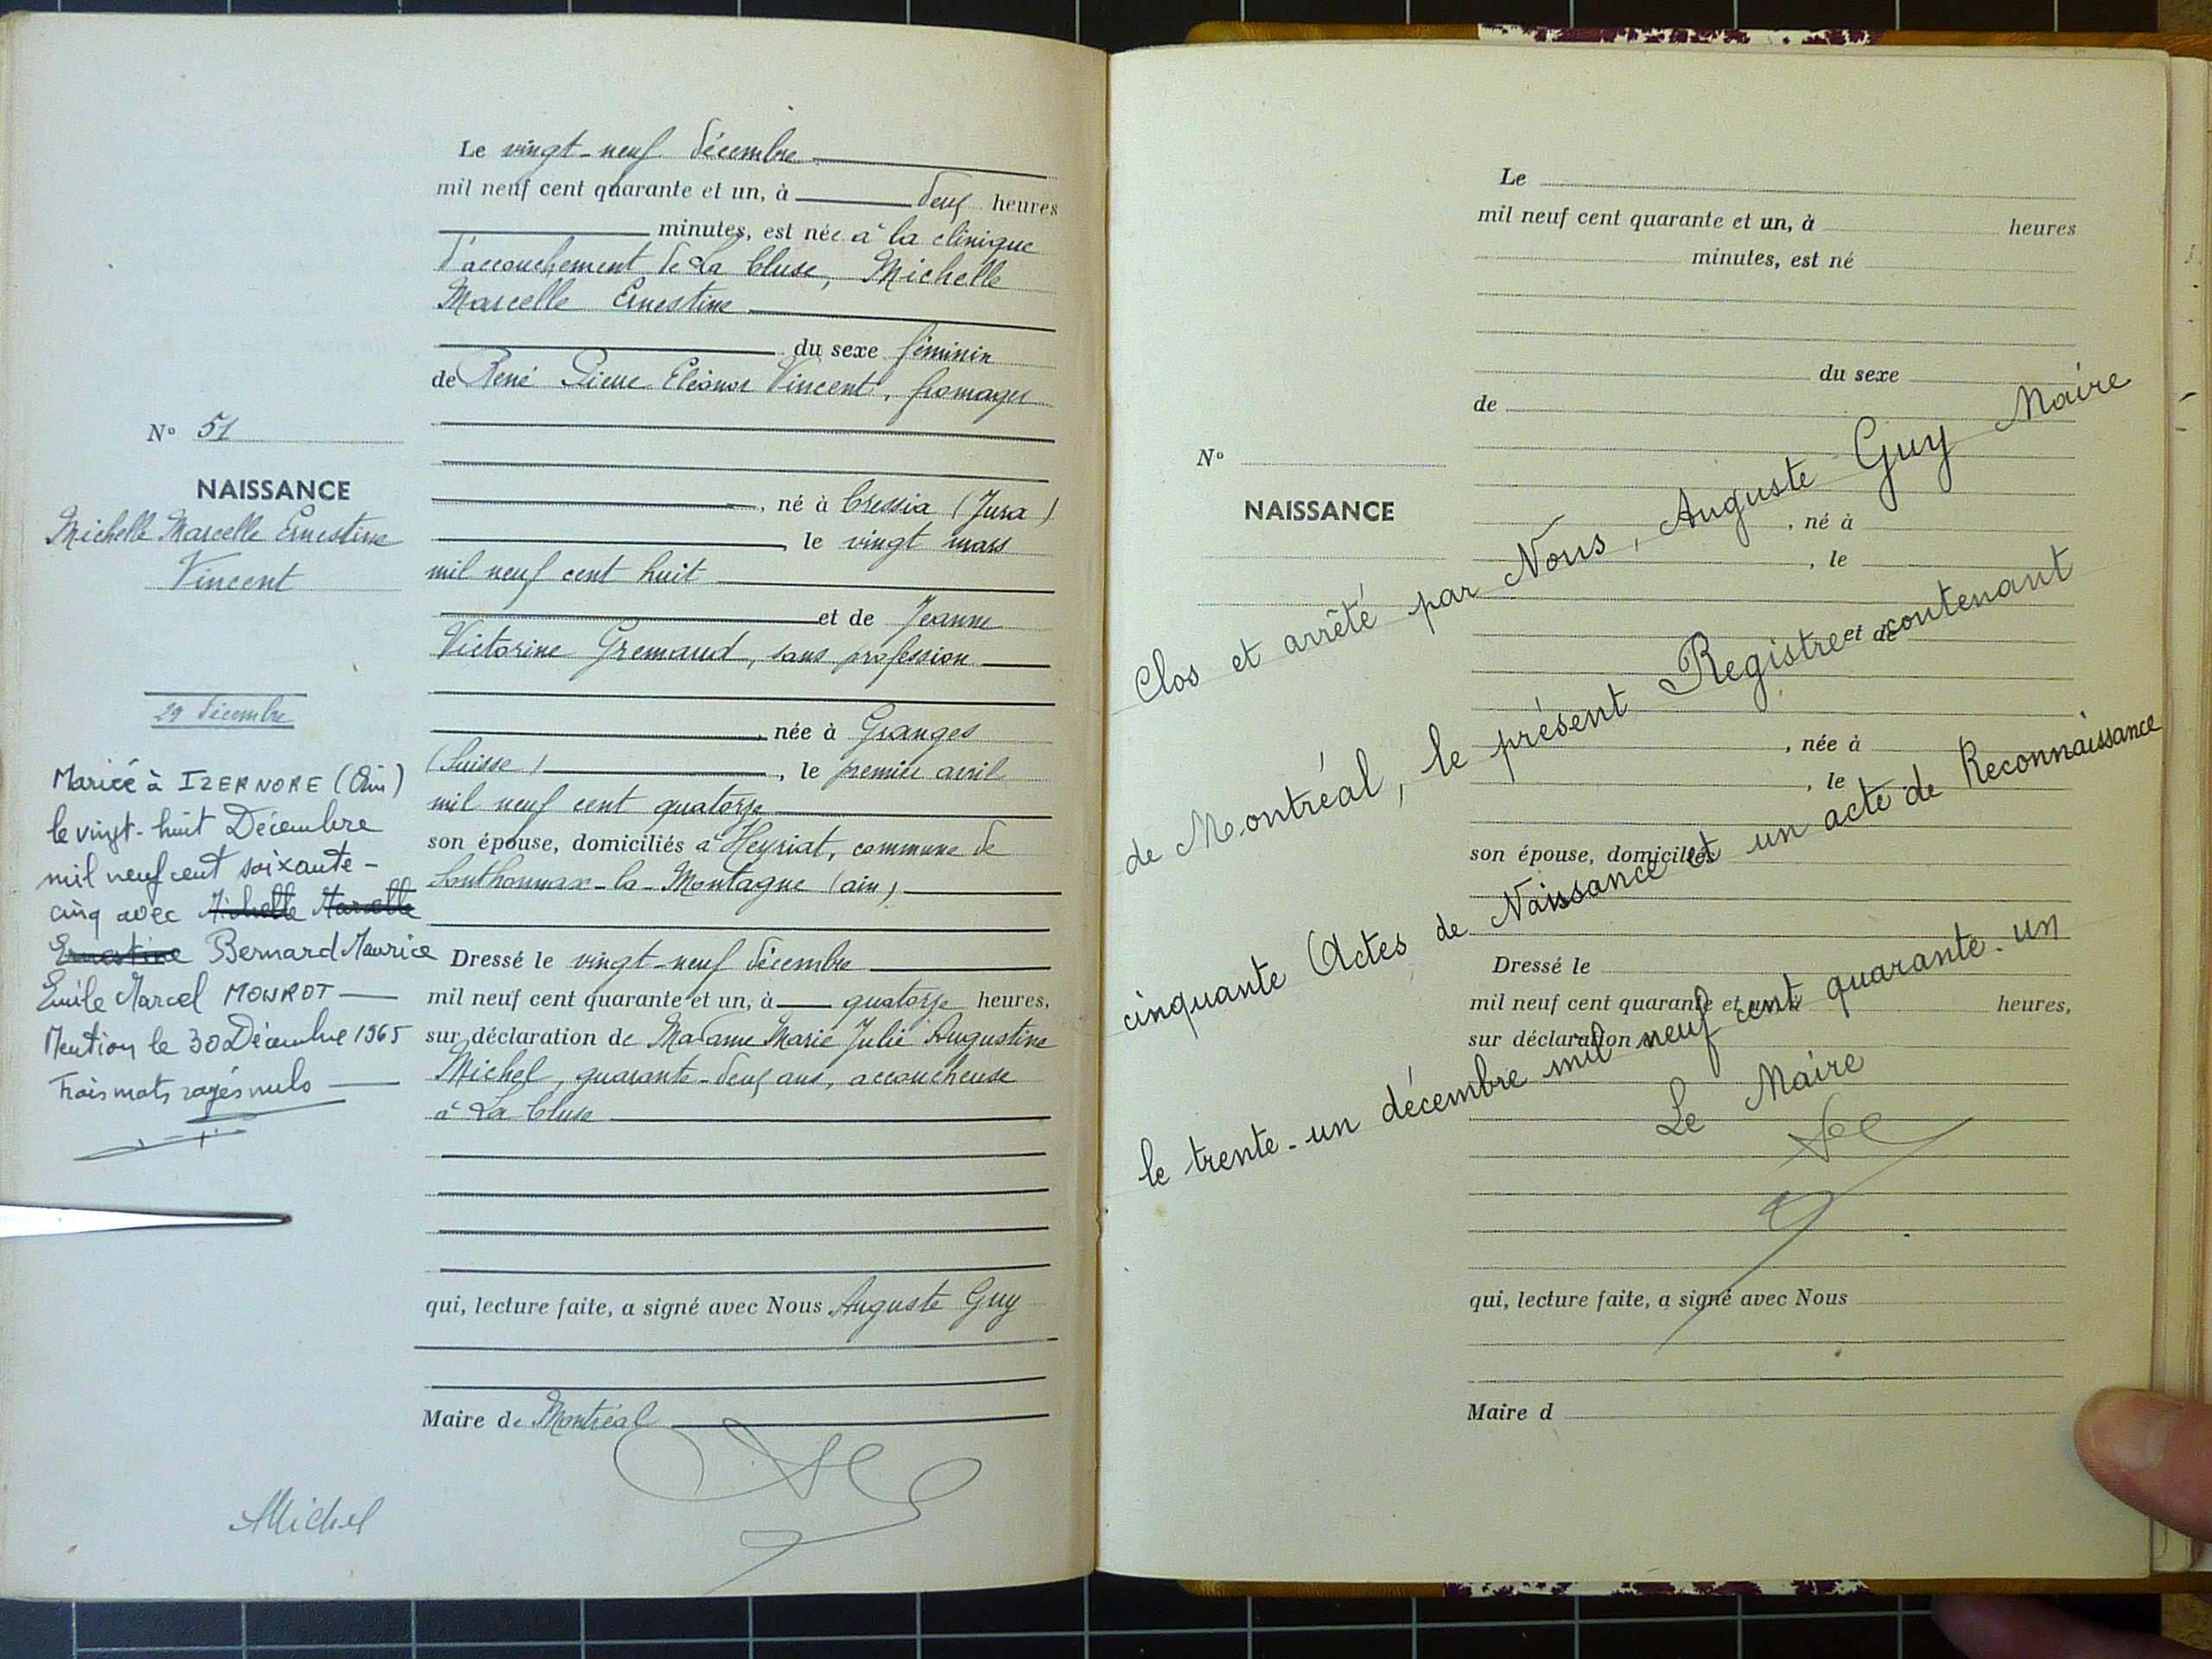 Le vingt-neuf décembre
mil neuf cent quarante et un, à deux heures
minutes, est née à la clinique
d'accouchement de La Cluse, Michelle
Marcelle Ernestine
du sexe féminin
de René Pierre Eléonor Vincent, fromager
né à Cressia (Jura)
, le vingt mars
mil neuf cent huit
et de Jeanne
Victorine Gremaud, sans profession
, née à Granges
(Suisse), le premier avril
mil neuf cent quatorze
son épouse, domiciliés à Heyriat, commune de
Sonthonnax-la-Montagne (ain),
Dressé le vingt-neuf décembre
mil neuf cent quarante et un, à quatorze heures,
sur déclaration de Madame Marie Julie Augustine
Michel, quarante-deux ans, accoucheuse
à La Cluse
qui, lecture faite, a signé avec Nous Auguste Guy
Maire de Montréal
N° 51
NAISSANCE
Michelle Marcelle Ernestine
Vincent
29 décembre
Mariée à IZERNORE (Ain)
le vingt-huit Décembre
mil neuf cent soixante-
cinq avec Michelle Marcelle
Ernestine Bernard Maurice
Emile Marcel MONROT
Mention le 30 Décembre 1965
Trois mots rayés nuls
Michel
Le
mil neuf cent quarante et un, à heures
minutes, est né
du sexe
de
N°
NAISSANCE
, né à
, le
et de
, née à
, le
son épouse, domiciliés
Dressé le
mil neuf cent quarante et un, à heures,
sur déclaration
qui, lecture faite, a signé avec Nous
Maire d
Clos et arrêté par Nous, Auguste Guy Maire
de Montréal, le présent Registre contenant
cinquante Actes de Naissance et un acte de Reconnaissance
le trente-un décembre mil neuf cent quarante-un
Le Maire